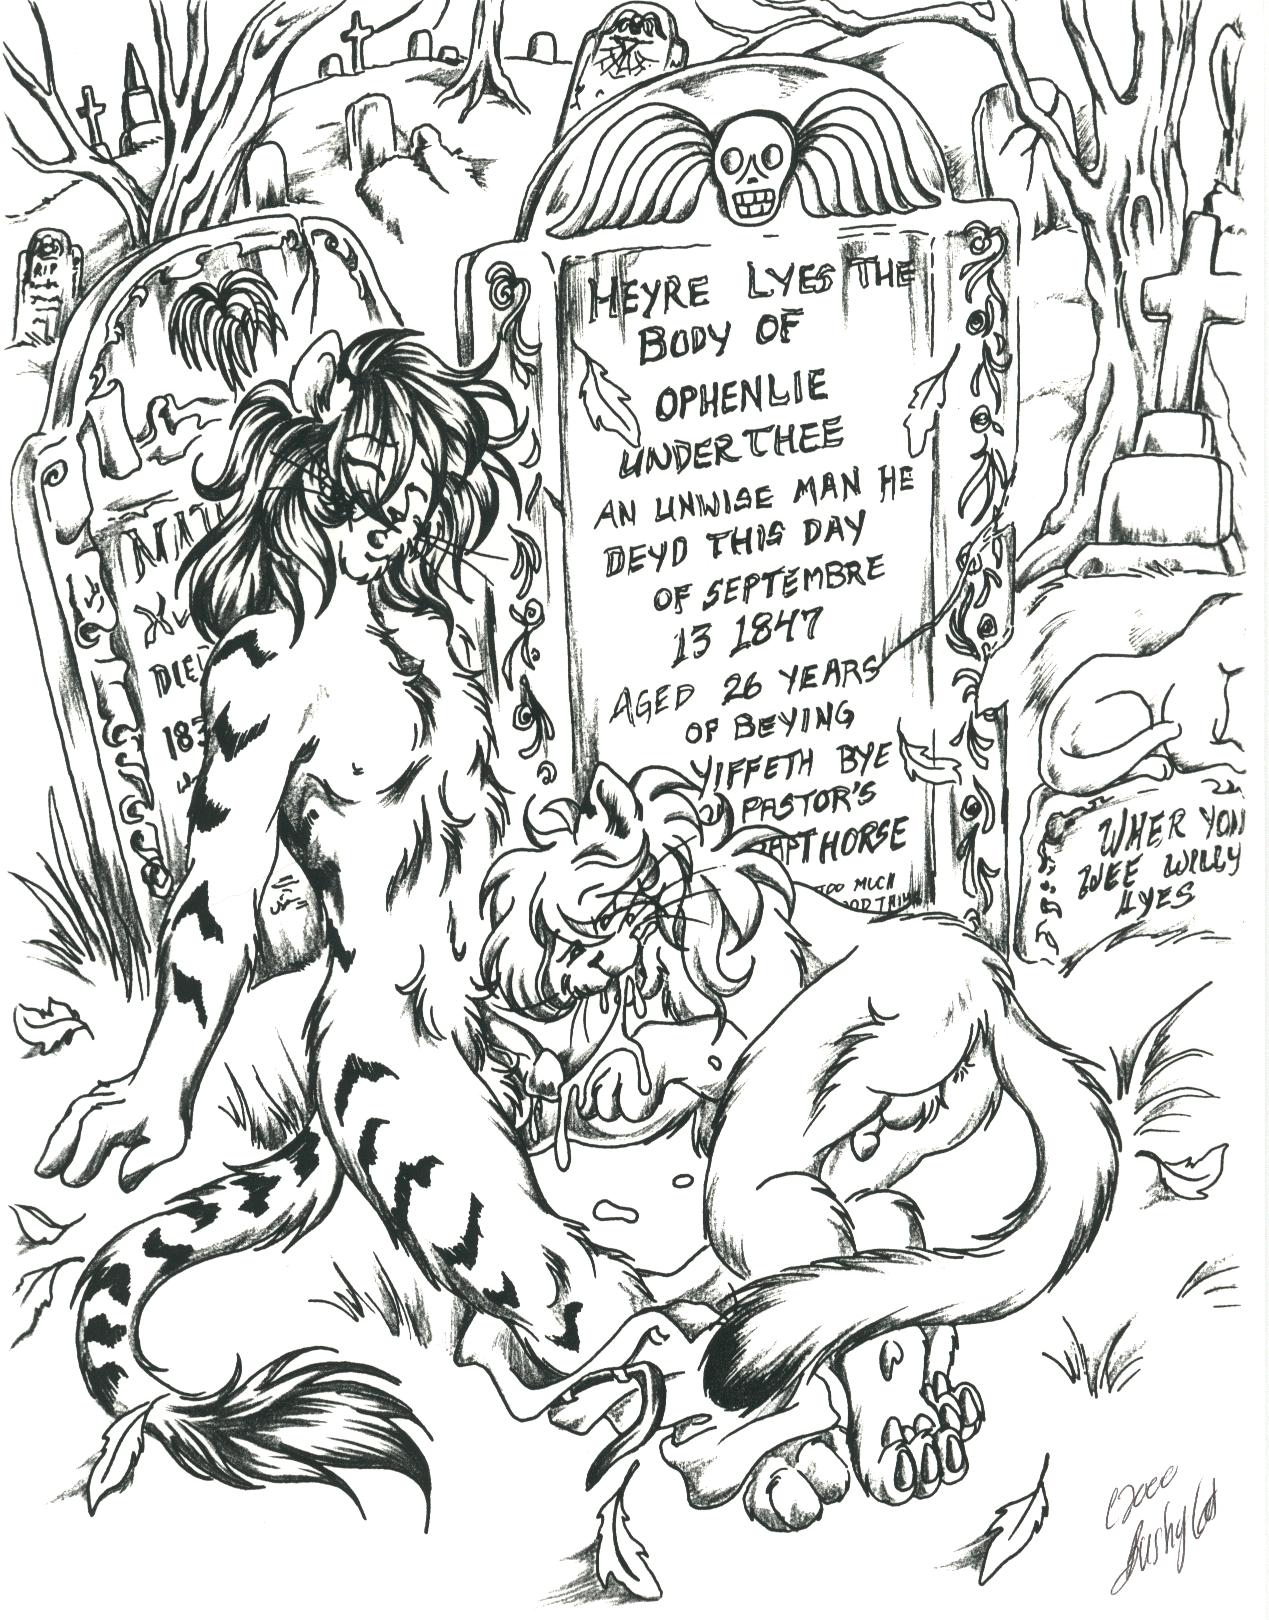 RIP
HEYRE LYES THE
BODY OF
OPHENLIE
UNDERTHEE
AN UNWISE MAN HE
DEYD THIS DAY
OF SEPTEMBRE
13 1847
AGED 26 YEARS
OF BEYING
YIFFETH BYE
PASTOR'S
APTHORSE
TOO MUCH
DIED
183
WHER YON
WEE WILLY
LYES
©2000
BushyCat